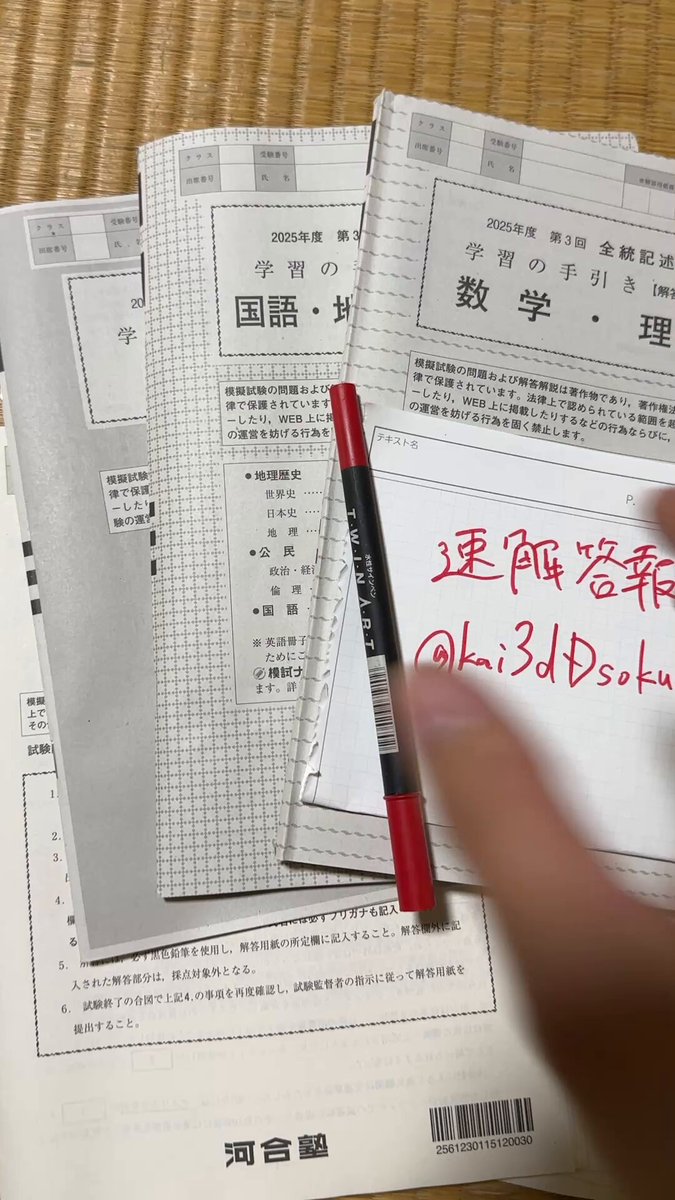 クラス
受験番号
出席番号
氏 名
2025年度 第3回 全統記述
学習の手引き【解答
数学・理
模擬試験の問題および解答解説は著作物であり，著作権法
律で保護されています。法律上で認められている範囲を超
ーしたり，WEB上に掲載したりするなどの行為ならびに，
の運営を妨げる行為を固く禁止します。
テキスト名
P.
速解答報
@kai3dĐsoku
TWINART
水性サインペン
クラス
受験番号
出席番号
氏 名
2025年度 第3
学習の
国語・地
模擬試験の問題および
律で保護されています
ーしたり，WEB上に掲
の運営を妨げる行為を
●地理歴史
世界史 ……
日本史 ……
地 理 ……
●公 民
政治・経済
倫 理
●国 語
※ 英語冊子
ために
模試ナ
ます。詳
クラス
受験番号
出席番号
氏
20
学
模擬試
律で保護
ーしたり
験の運営
模擬
上で
その
試験
1.
2.
3.
4.
る
5.
必ず黒色鉛筆を使用し，解答用紙の所定欄に記入すること。解答欄外に記
入された解答部分は，採点対象外となる。
6. 試験終了の合図で上記4.の事項を再度確認し，試験監督者の指示に従って解答用紙を
提出すること。
河合塾
2561230115120030